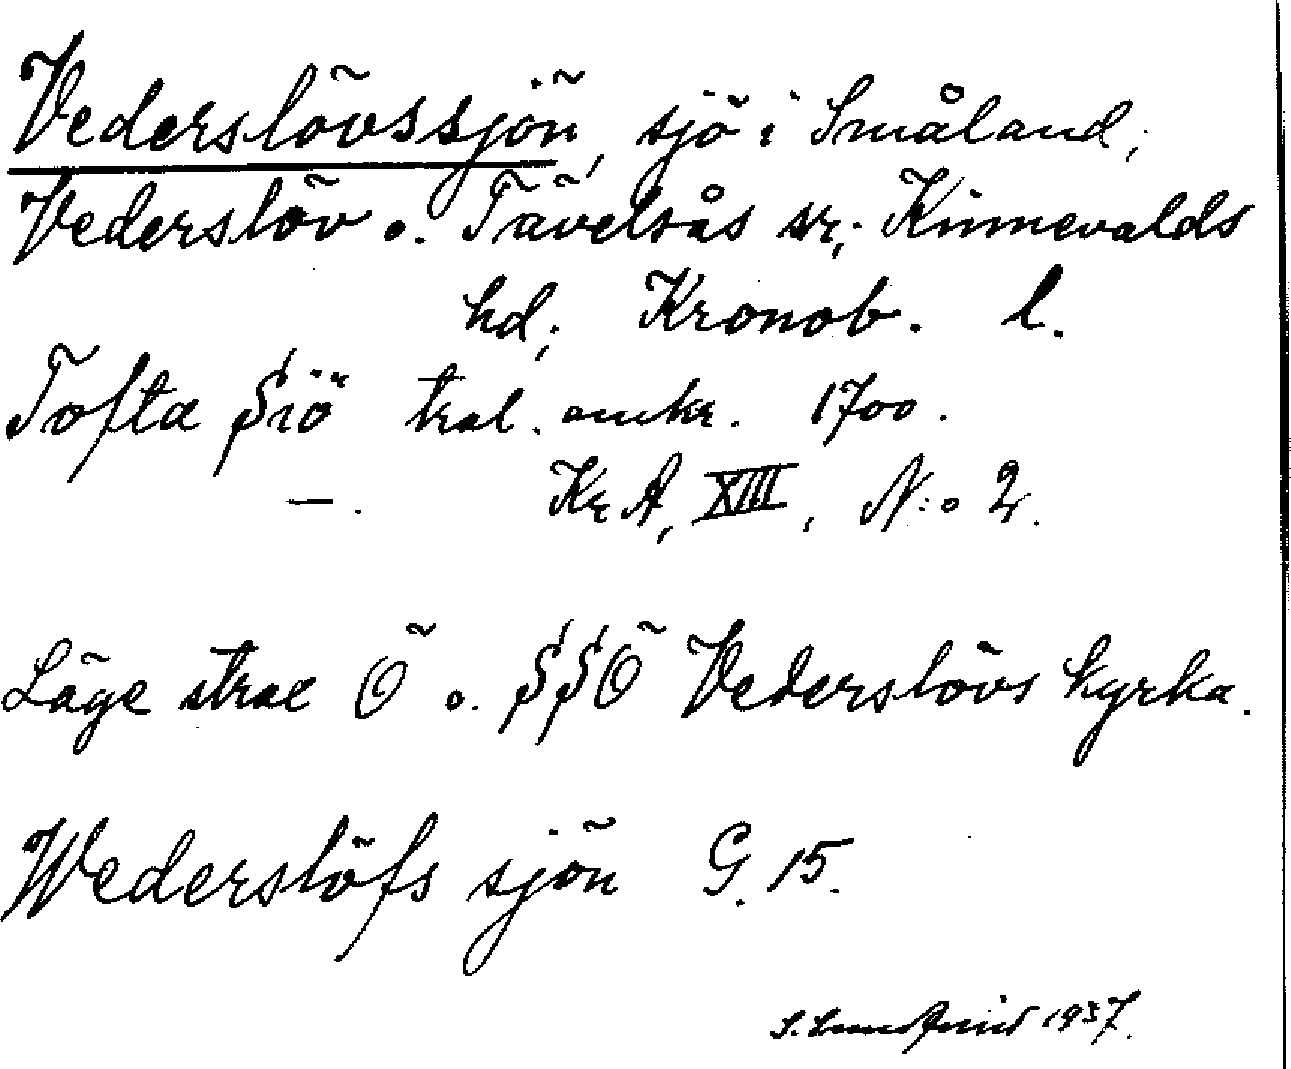 Vederslövssjön, sjö i Småland;
Vederslöv o. Tävelsås snr; Kinnevalds
hd; Kronob. l.
Tofta Siö tral. omkr. 1700.
—. KrA, XIII, N:o 2.
Läge strax Ö o. SSÖ Vederslövs kyrka.
Wederslöfs sjön G. 15.
1937.